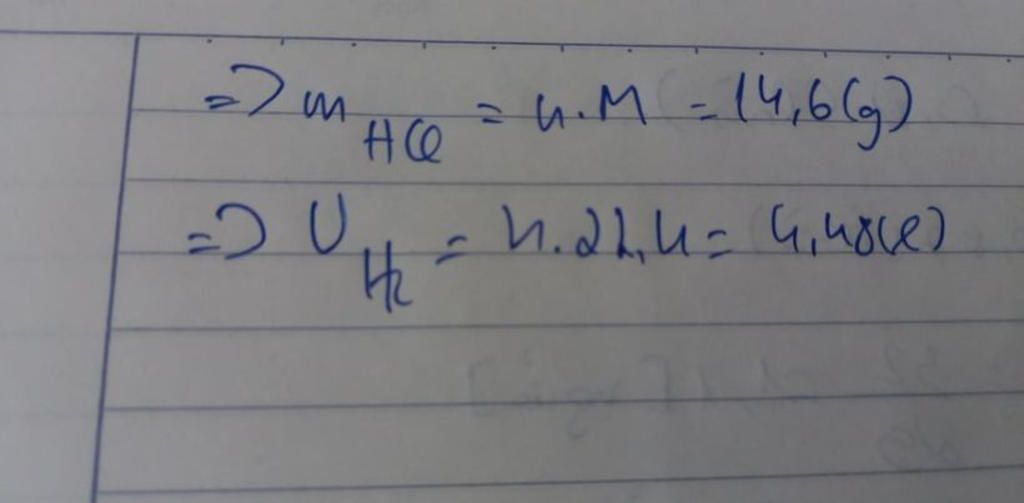 => m HCl = n.M = 14,6(g)
=> V H2 = n.22,4 = 4,48(l)